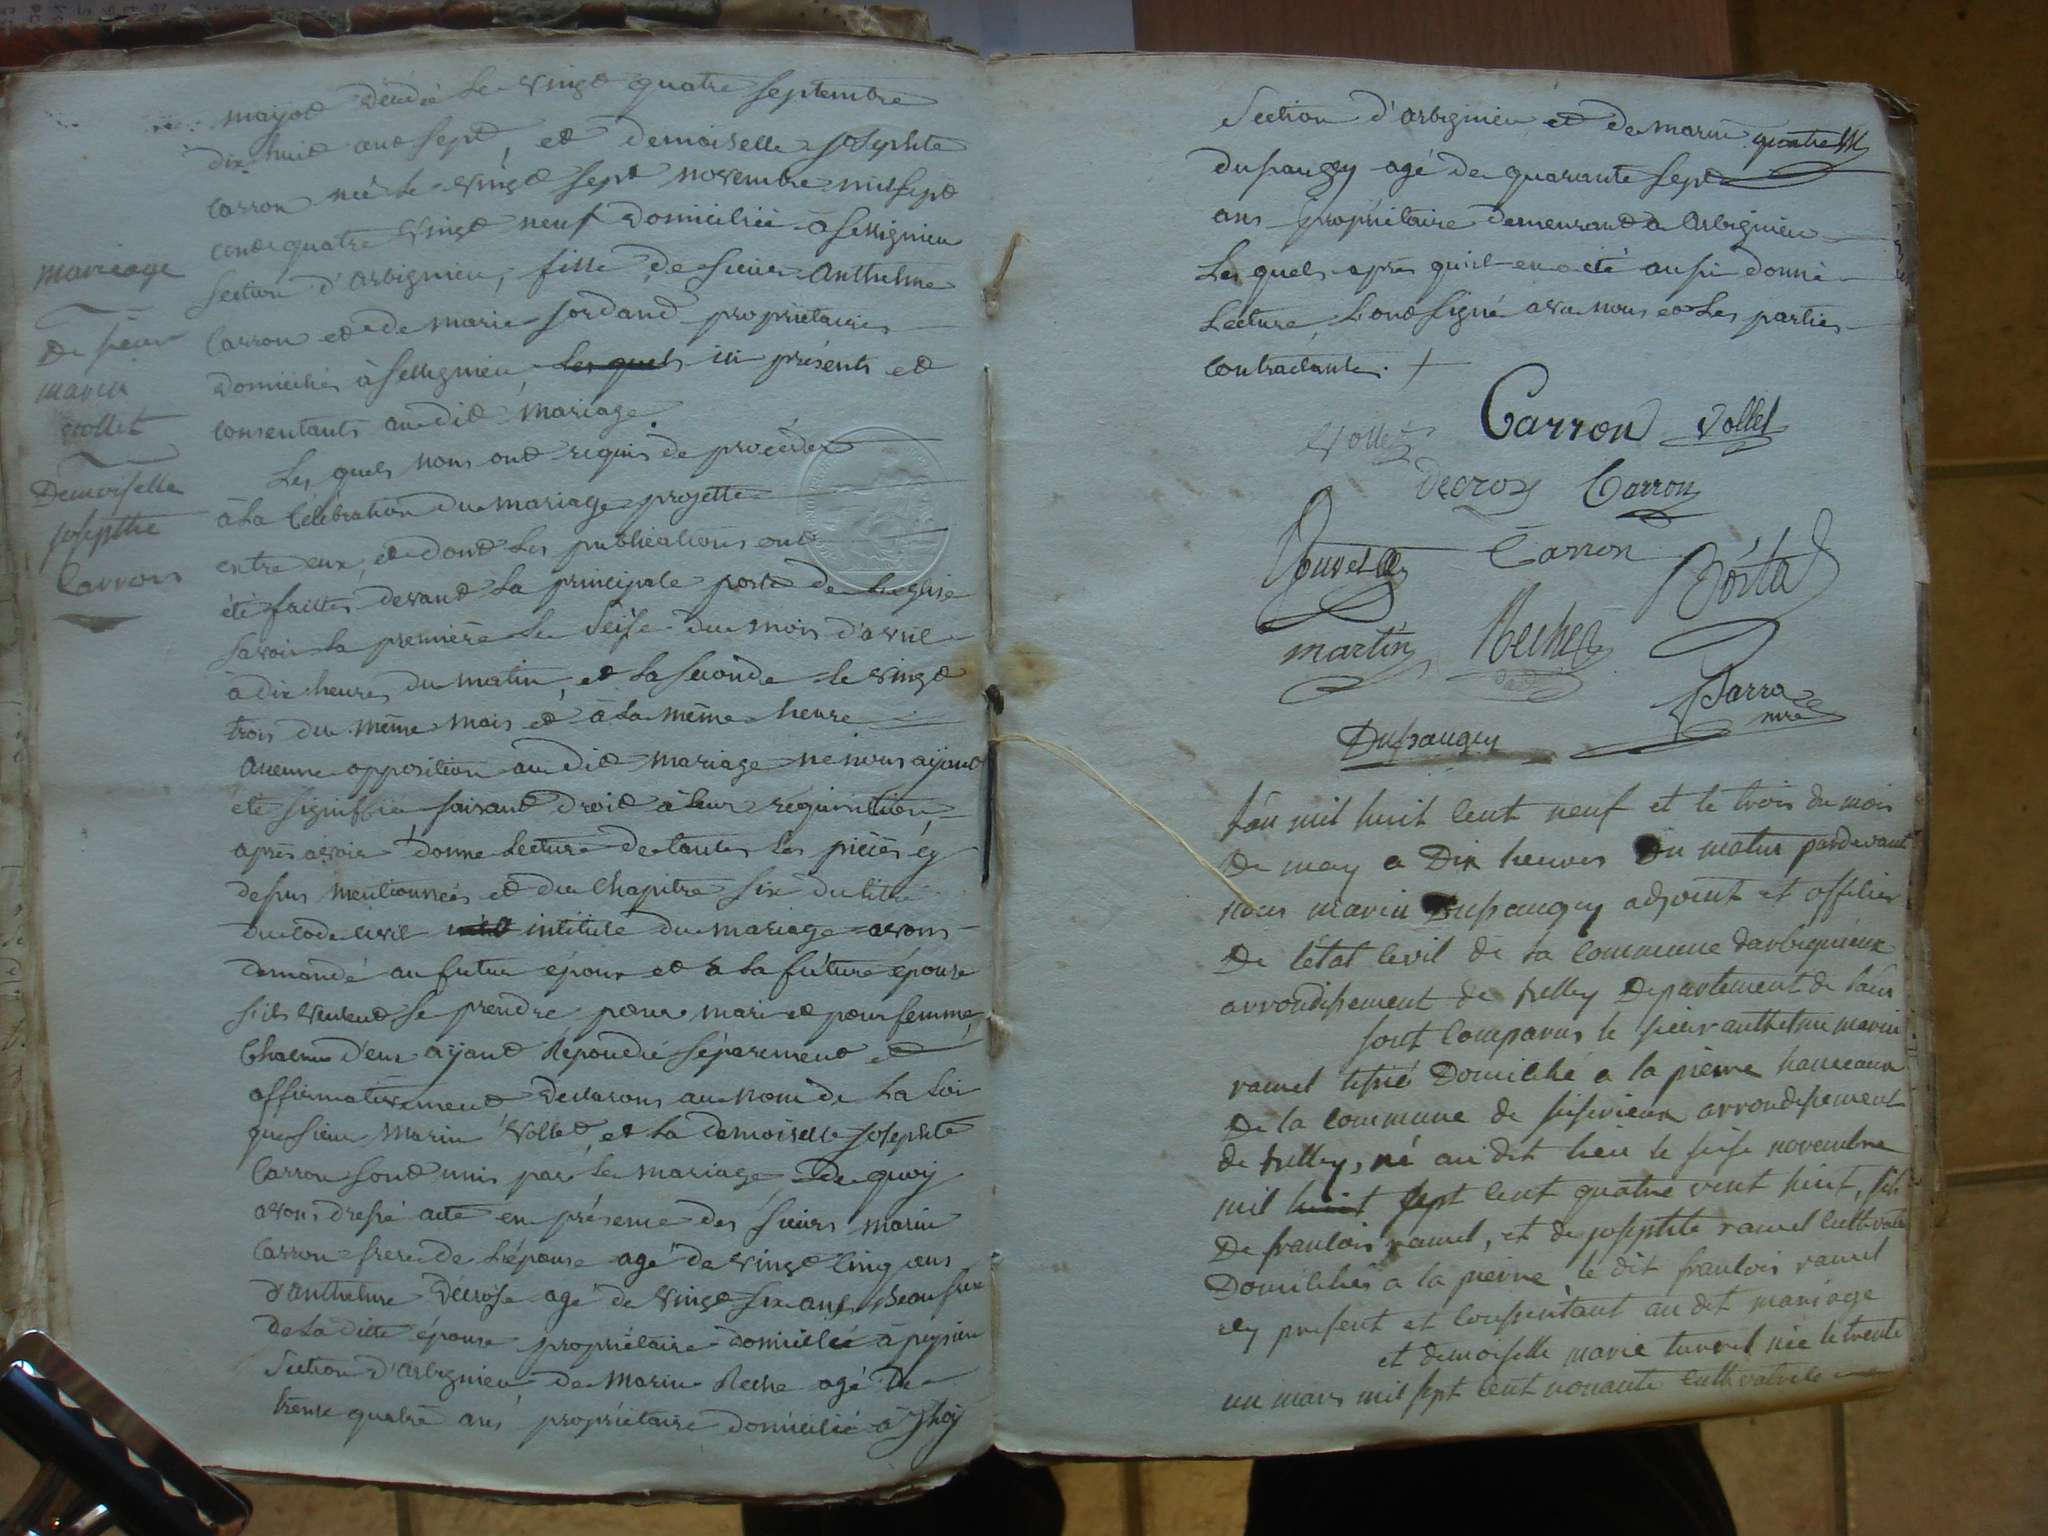 mariage
De sieur
marin
vollet
Demoiselle
josephte
Carron
mayot décédé le vingt quatre septembre
dix huit cent sept, et demoiselle josephte
Carron née le vingt sept novembre mil sept
cent quatre vingt neuf domiciliée à
section d'arbignieu, fille de sieur Anthelme
Carron et de marie jordand propriétaires
domiciliés à les quels ici présents et
consentants au dit mariage.
Les quels nous ont requis de procéder
à la Célébration du mariage projetté
entre eux, et dont les publications ont
été faittes devant la principale porte de leglise
savoir la première le seise du mois d'avril
à dix heures du matin, et la seconde le vingt
trois du même mois et à la même heure
Aucunne opposition au dit mariage ne nous ayant
été signiffiée faisant droit à leur réquisition,
après avoir donné Lecture de toutes les pièces cy
dessus mentionnées et du Chapitre six du titre
du code civil intitulé du mariage avons
demandé au futur époux et à la future épouse
s'ils veulent se prendre pour mari et pour femme,
Chacun d'eux ayant Répondu séparement et
affirmativement déclarons au nom de La Loi
que sieur Marin Vollet, et la demoiselle josephte
Carron sont unis par le mariage de quoy
avons dressé acte en présence des sieurs marin
Carron frere de l'épouse agé de vingt cinq ans
d'anthelme Décrose agé de vingt six ans, Beau frere
de la ditte épouse propriétaire domicilié à peysieu
section d'arbignieu de Marin Reche agé de
trente quatre ans, propriétaire domicilié à
section d'arbignieu et de marin quatre
dupaugey agé de quarante sept
ans propriétaire demeurant à Arbignieu
Les quels après qu'il en a été aussi donné
Lecture L'ont signé avec nous et Les parties
contractantes. +
Vollet Carron vollet
decroz Carron
Carron
martin
Parra
Dupaugey
L'an mil huit cent neuf et le trois du mois
De may a Dix heures Du matin pardevant
nous marin Dupaugey adjoint et officier
De létat civil de la commune darbignieux
arrondissement de belley Departement de lain
sont comparus le sieur anthelme marin
ravul Domicilié a la pierre hameaux
De la commune de arrondissement
de belley, né au dit lieu le seise novembre
mil huit sept cent quatre vint huit, fils
De francois ravul, et de josephte ravul
Domiciliés a la pierre, le dit francois ravul
cy present et consentant au dit mariage
et demoiselle marie turrel née le trente
un mars mil sept cent nonante